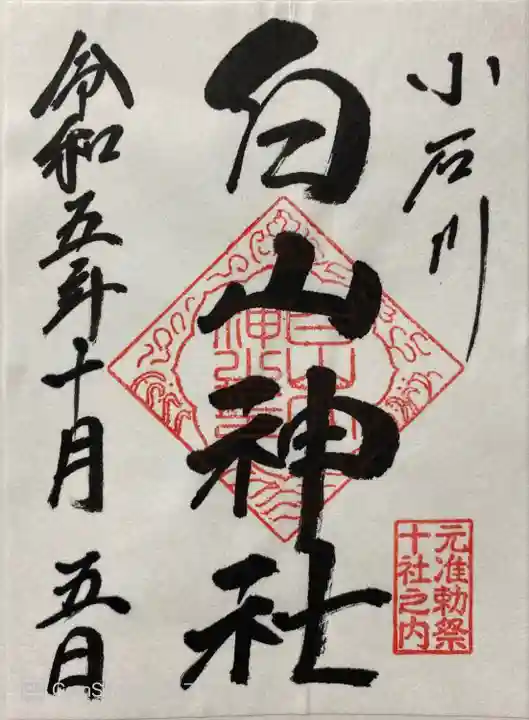 小石川
白山神社
令和五年十月五日
元准勅祭
十社之内